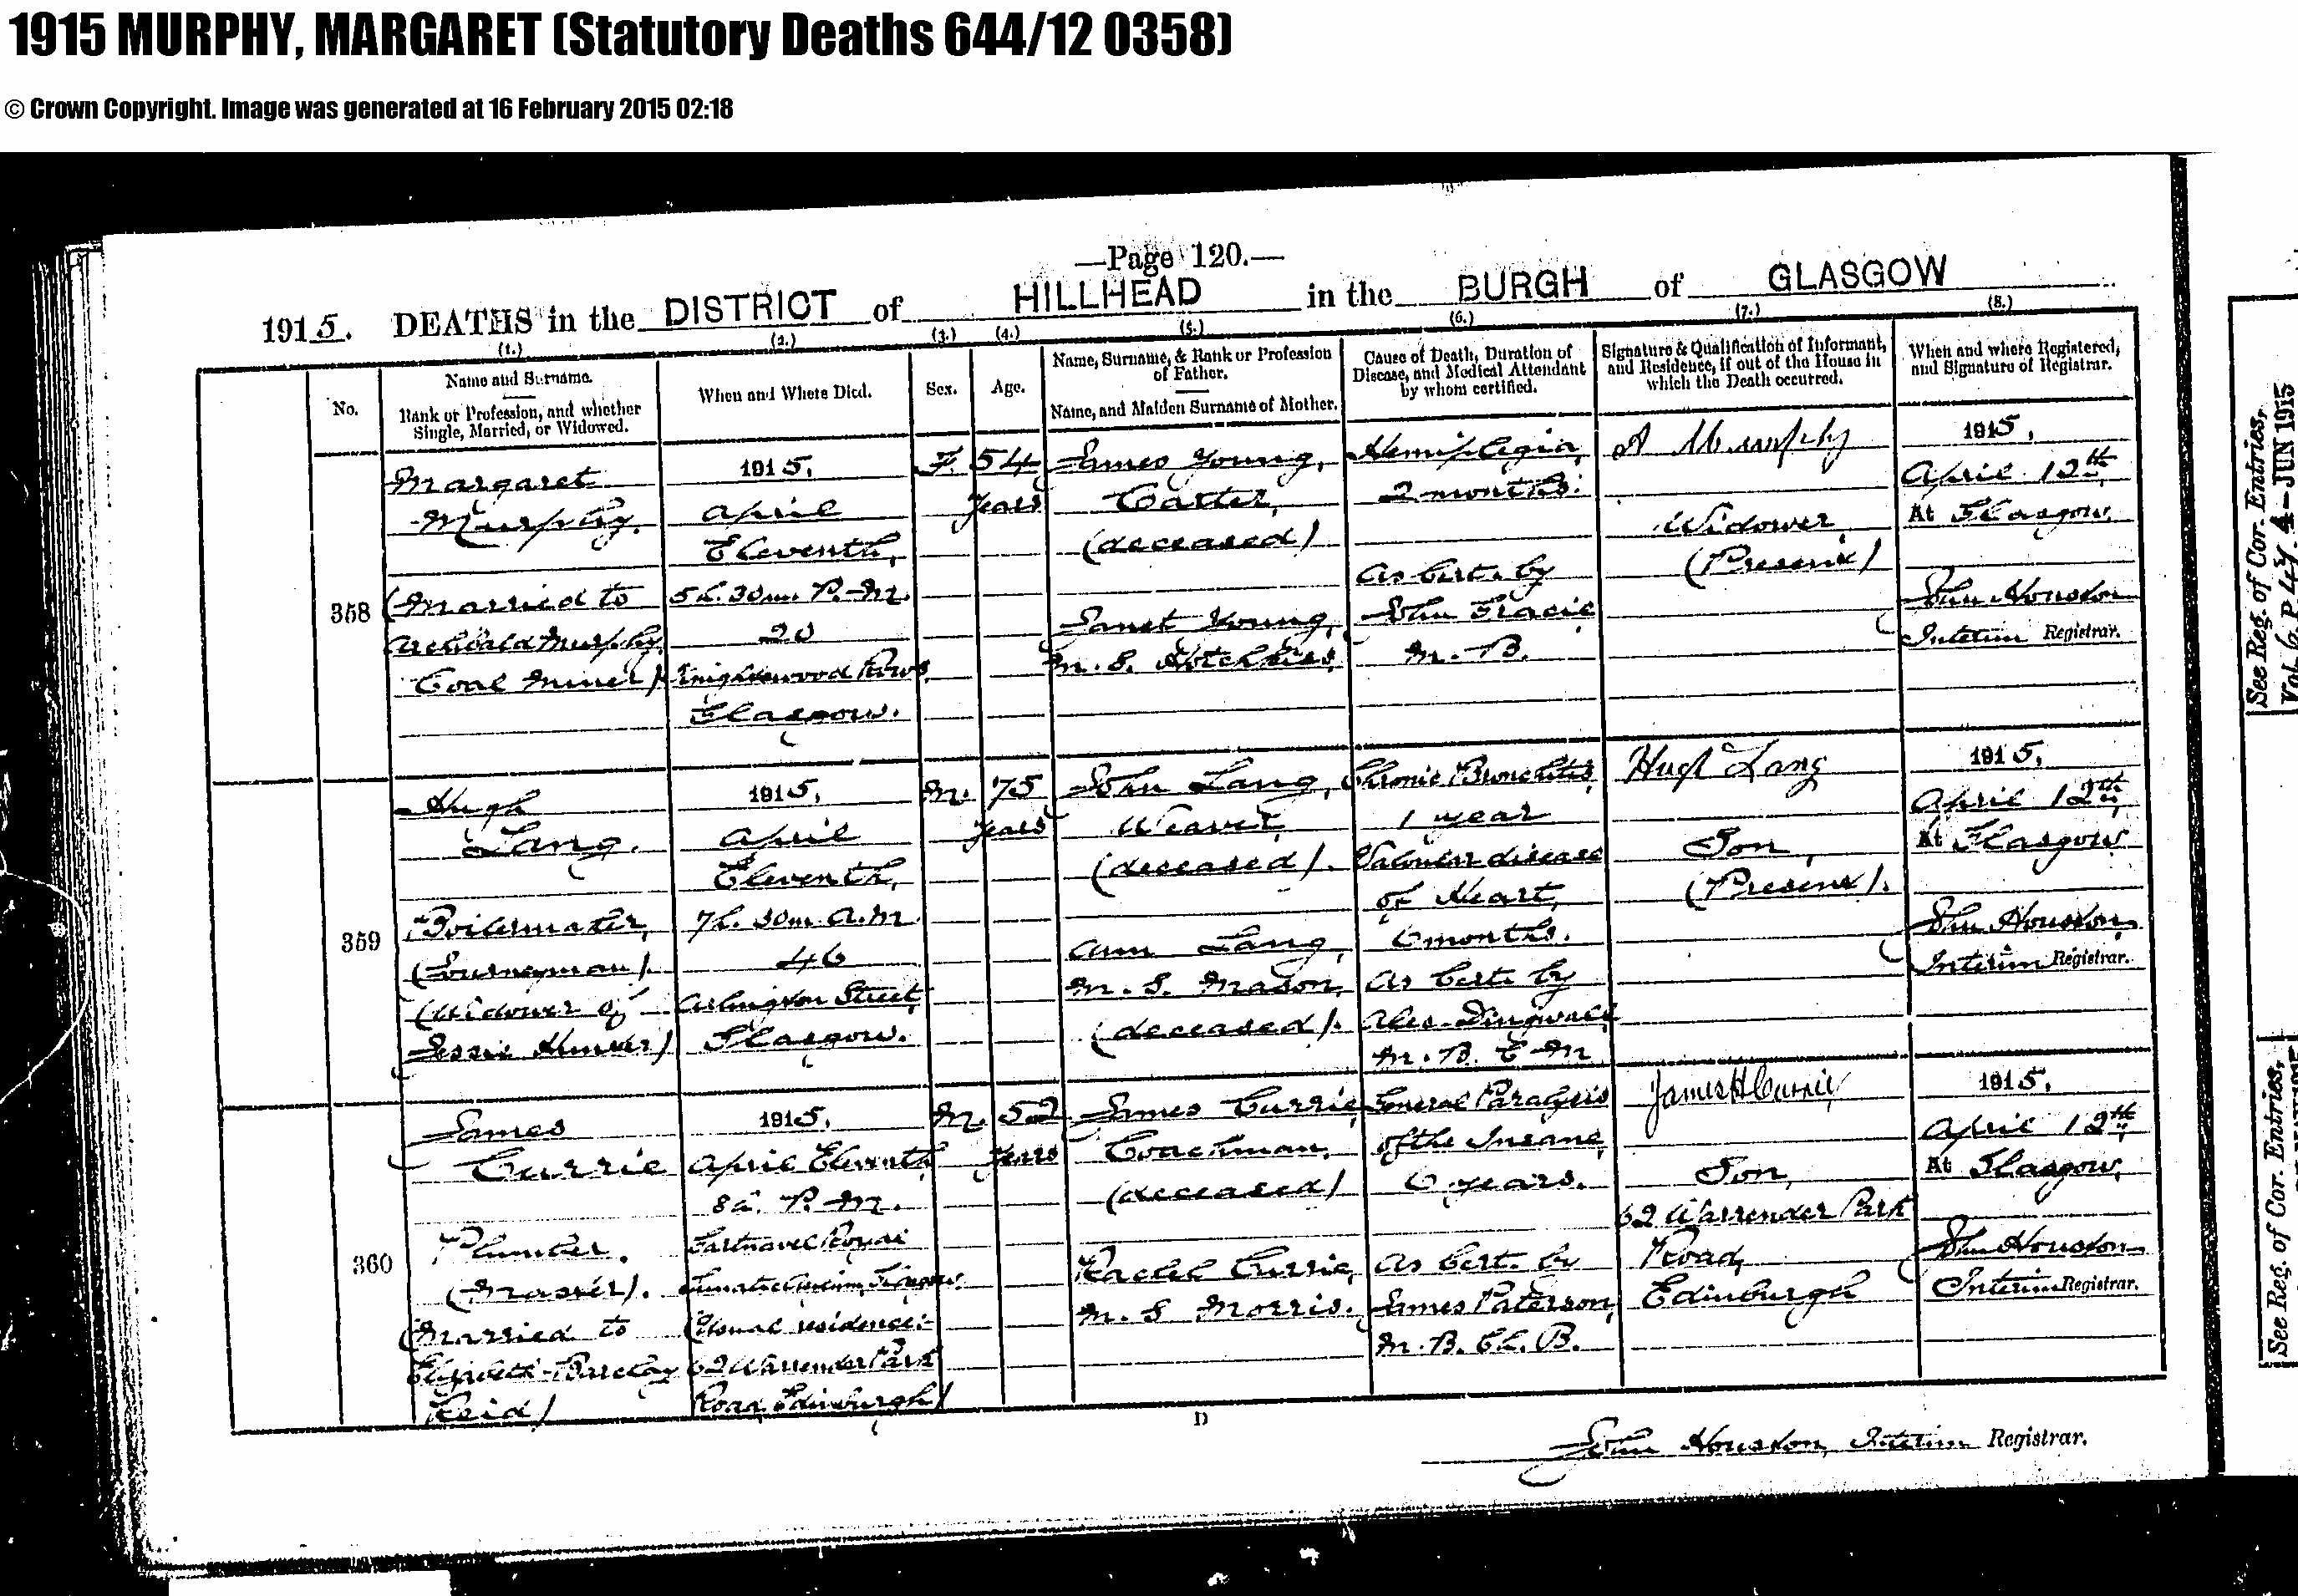 1915 MURPHY, MARGARET (Statutory Deaths 644/12 0358)
© Crown Copyright. Image was generated at 16 February 2015 02:18
—Page 120.—
1915. DEATHS in the DISTRICT of HILLHEAD in the BURGH of GLASGOW
(1.) (2.) (3.) (4.) (5.) (6.) (7.) (8.)
No.
Name and Surname.
Rank or Profession, and whether
Single, Married, or Widowed.
When and Where Died.
Sex.
Age.
Name, Surname, & Rank or Profession
of Father.
Name, and Maiden Surname of Mother.
Cause of Death, Duration of
Disease, and Medical Attendant
by whom certified.
Signature & Qualification of Informant,
and Residence, if out of the House in
which the Death occurred.
When and where Registered,
and Signature of Registrar.
358
Margaret
Murphy.
(Married to
Archibald Murphy
Coal Miner)
1915.
April
Eleventh,
5h. 30m. P.M.
20
Knightswood Rows,
Glasgow.
F.
54
Years
James Young,
Carter,
(deceased)
Janet Young,
M.S. Hotchkies,
Hemiplegia,
2 months.
As Cert. by
John
M.B.
A Murphy
Widower
(Present)
1915,
April 12th
At Glasgow,
John Houston
Interim Registrar.
359
Hugh
Lang.
Boilermaker,
(Journeyman).
(Widower of
Jessie Hunter)
1915,
April
Eleventh,
7h. 30m. A.M.
46
Arlington Street,
Glasgow.
M.
75
Years
John Lang,
Weaver,
(deceased).
Ann Lang,
M.S. Mason,
(deceased).
Chronic Bronchitis,
1 year
Valvular disease
of Heart,
6 months.
As Cert. by
Alex. Dingwall
M.B. C M
Hugh Lang
Son,
(Present).
1915,
April 12th
At Glasgow
John Houston
Interim Registrar.
360
James
Currie
Plumber.
(Master).
(Married to
Elizabeth Barclay
Reid)
1915.
April Eleventh
8h. P.M.
Gartnavel Royal
Lunatic Asylum, Glasgow.
(Usual residence:-
62 Warrender Park
Road, Edinburgh)
M.
52
Years
James Currie
Coachman,
(deceased)
Rachel Currie,
M.S Morris.
General Paralysis
of the Insane,
6 years.
As Cert. by
James Paterson,
M.B. Ch. B.
James H Currie
Son,
62 Warrender Park
Road,
Edinburgh
1915,
April 12th
At Glasgow,
John Houston
Interim Registrar.
D
John Houston, Interim Registrar.
See Reg. of Cor. Entries,
Vol. 6 P. 4 - JUN 1915
See Reg. of Cor. Entries,